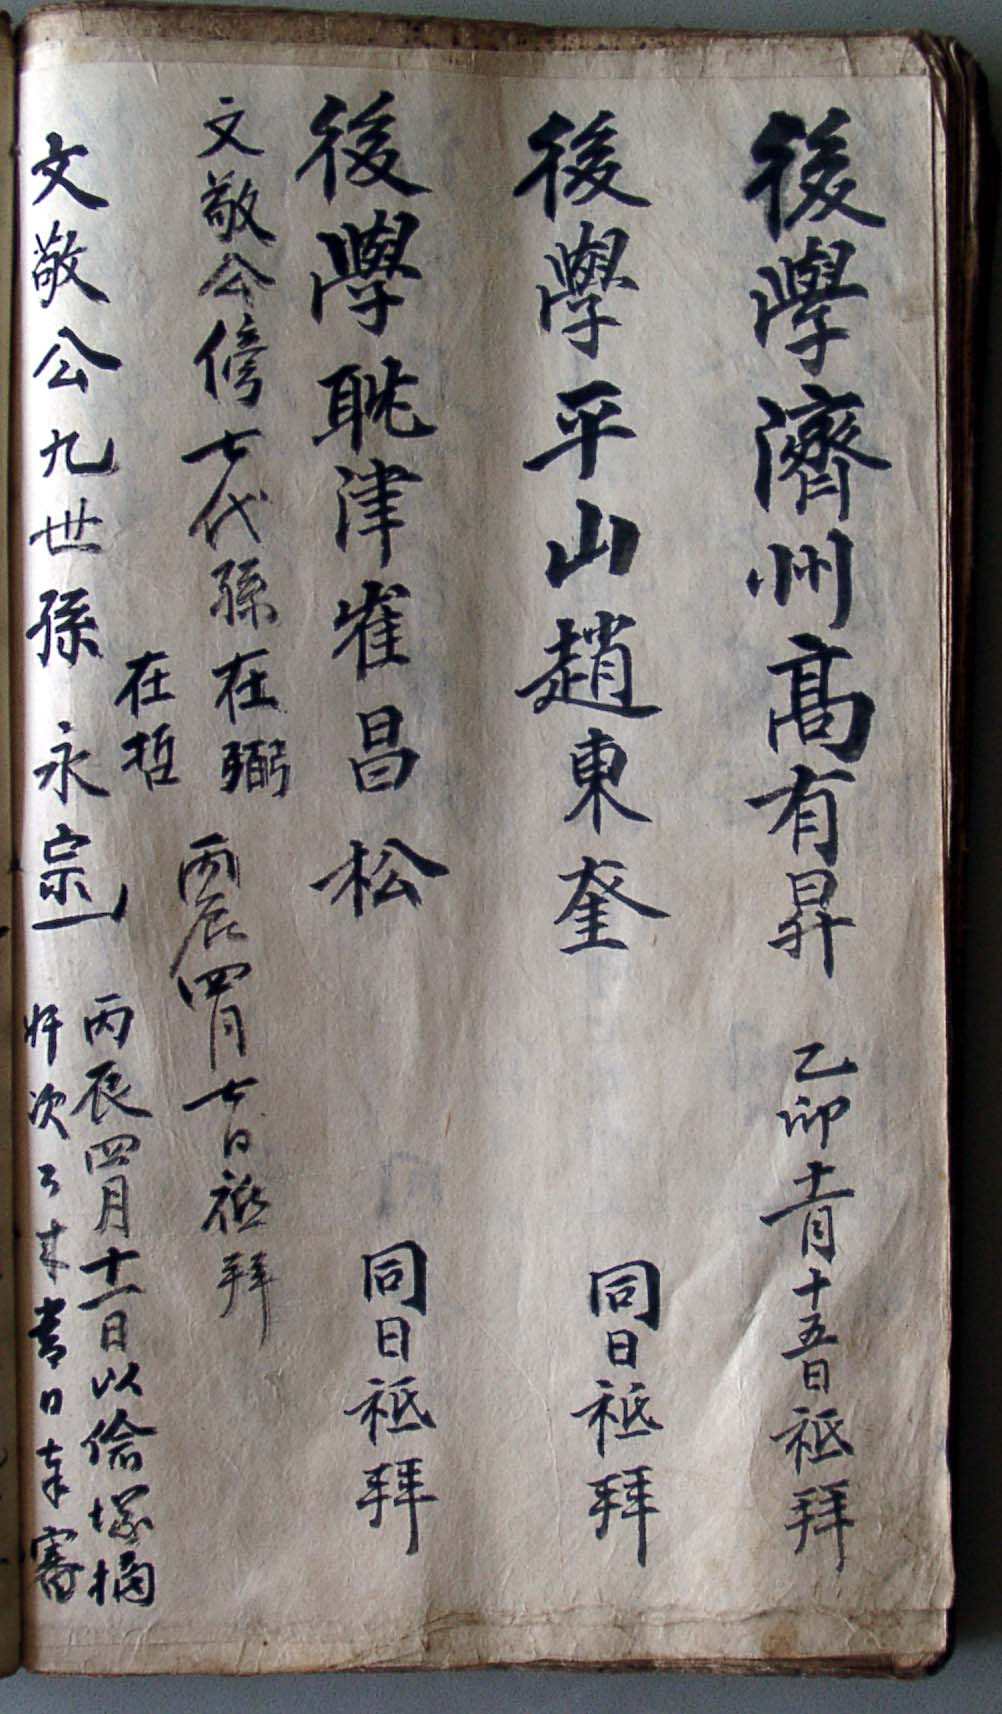 後學濟州高有昇 乙卯十一月十五日祗拜
後學平山趙東奎 同日祗拜
後學耽津崔昌松 同日祗拜
文敬公傍七代孫在弼 丙辰四月七日祗拜
在哲
文敬公九世孫永宗 丙辰四月十一日以偸塚摘
奸次 書日奉審